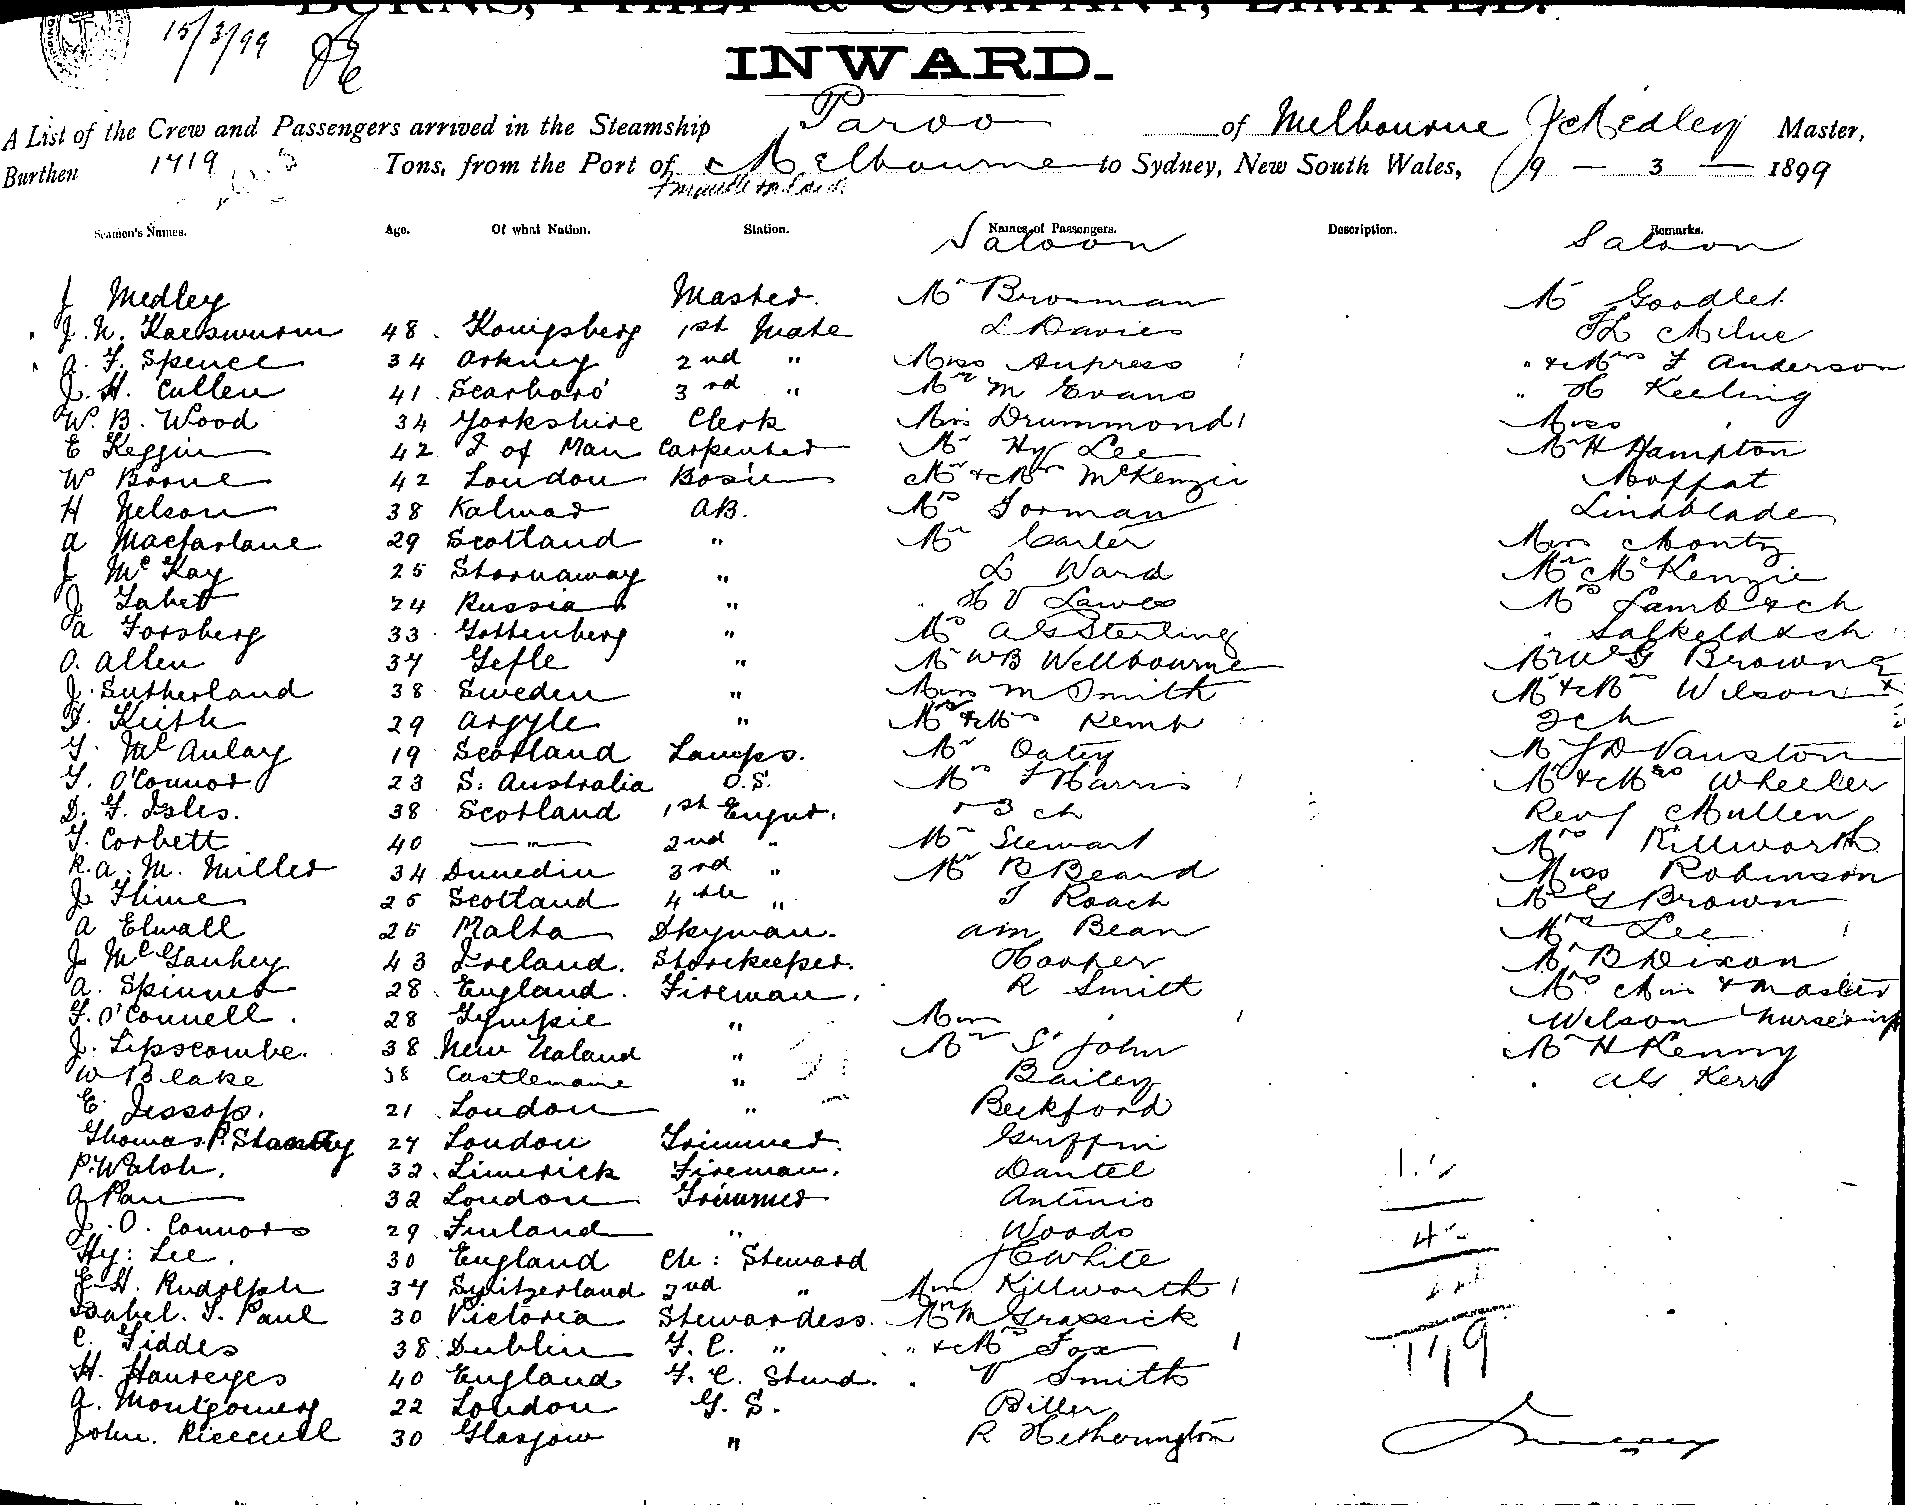 BURNS, PHILP & COMPANY, LIMITED.
15/3/99
INWARD.
A List of the Crew and Passengers arrived in the Steamship Paroo of Melbourne J Medley Master,
Burthen 1719 Tons, from the Port of Melbourne to Sydney, New South Wales, 9 - 3 - 1899
Seamen's Names. Age. Of what Nation. Station. Names of Passengers. Description. Remarks.
Saloon Saloon
J Medley Master. Mr Brosman Mr Goodlet
J. N. 48 Konigsberg 1st Mate L Davies Milne
A. F. Spence 34 Orkney 2nd " Miss Aupress " & Mrs F Anderson
J. H. Cullen 41 Scarboro' 3rd " Mr M Evans " H Keeling
W. B. Wood 34 Yorkshire Clerk Miss Drummond 1 Miss "
E Keggin 42 I of Man Carpenter Mr Hy Lee Mr H Hampton
W Borne 42 London Bosun Mr & Mrs McKenzie Moffat
H Nelson 38 Kalmar AB. Mrs Gorman Lindblade
A Macfarlane 29 Scotland " Mr Carter Miss Montz
J McKay 25 Stornaway " L Ward Mr McKenzie
J 24 Russia " H V Lawes Mrs Lamb & ch
A Forsberg 33 Gottenberg " Mrs A G Sterling " Salkeld & ch
O. Allen 37 Gefle " Mr W B Wellbourne Mr W G Browne
J. Sutherland 38 Sweden " Miss M Smith Mr & Mrs Wilson &
D. Keith 29 Argyle " Mr & Mrs Kemp 3 ch
G. McAulay 19 Scotland Lamps. Mr Oatey Mr J D Vanston
G. O'Connor 23 S. Australia O.S. Mrs F Harris 1 Mr & Mrs Wheeler
D. G. Isles. 38 Scotland 1st Engnr. & 3 ch Rev J Mullen
G. Corbett 40 " 2nd " Mr Stewart Mrs Killworth
R. A. M. Miller 34 Dunedin 3rd " Mr B Beard Miss Robinson
J. Hime 25 Scotland 4th " T Roach Mr G Brown
A Elwall 25 Malta Dkyman. A M Bean Mrs Lee
J. McGauhey 43 Ireland. Storekeeper. Hooper Mr B Dixon
A. Spinner 28 England. Fireman. R Smith Mrs Miss & Master
F. O'Connell. 28 Gympie " Miss " 1 Wilson Nurse & inf
J. Lipscombe. 38 New Zealand " Mr St John Mr H Kenny
W Blake 38 Castlemaine " Bailey " A G Kerr
E. Jessop. 21 London " Beckford
Thomas P. Stanley 27 London Trimmer. Griffin
P. Walsh. 32 Limerick Fireman. Dantel
A Parr 32 London Trimmer Antinio
J. O. Connors 29 Finland " Woods
Hy: Lee. 30 England Ch: Steward J C White
E. H. Rudolph 37 Switzerland 2nd " Miss Killworth 1
Isabel. S. Paul 30 Victoria Stewardess. Mr M Grassick
C. Giddes 38 Dublin F. C. " " & Mrs Fox 1
H. Haureyes 40 England F. C. Stwd. " V Smith
A. Montgomery 22 London G. S. Biller
John. 30 Glasgow " R Hetherington
119